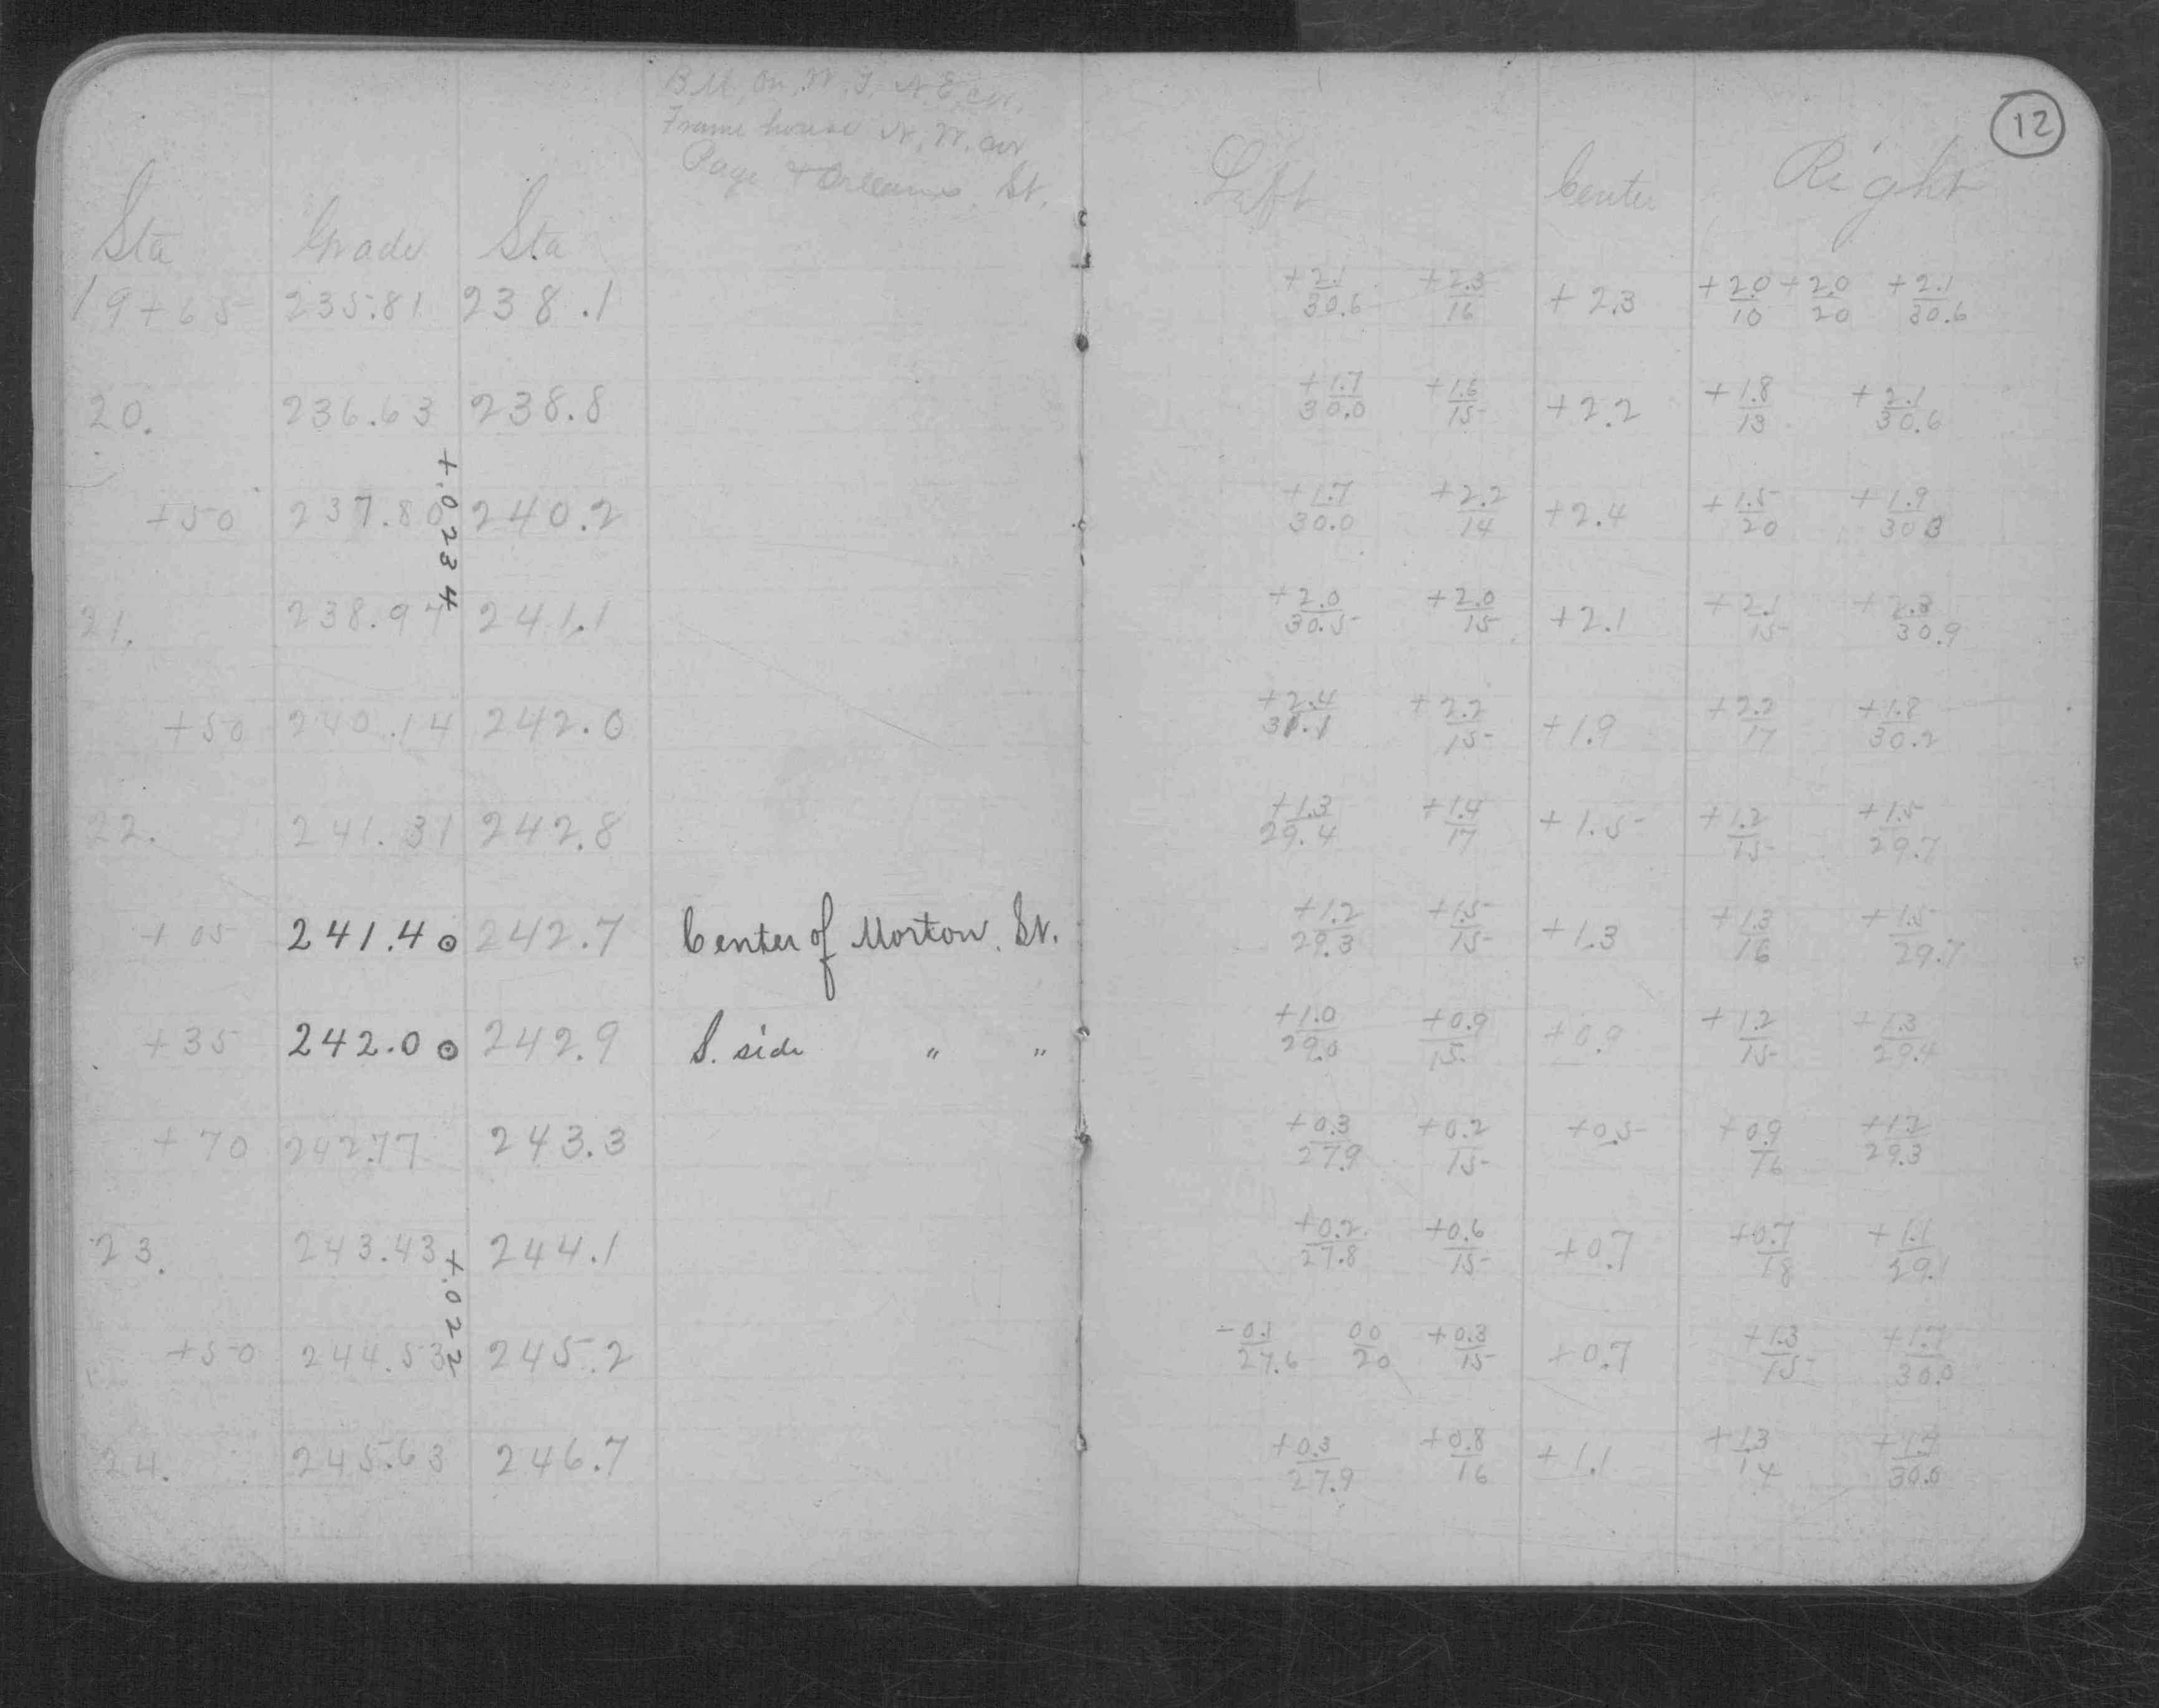 B.M. on W.T. N.E. cor.
Frame house N.W. cor
Page & Orleans St.
12
Sta Grade Sta Left Center Right
19+65 235.81 238.1 +2.1/30.6 +2.3/16 +2.3 +2.0/10 +2.0/20 +2.1/30.6
20. 236.63 238.8 +1.7/30.0 +1.6/15 +2.2 +1.8/13 +2.1/30.6
+50 237.80 240.2 +1.7/30.0 +2.2/14 +2.4 +1.5/20 +1.9/30.3
+.0234
21. 238.97 241.1 +2.0/30.5 +2.0/15 +2.1 +2.1/15 +2.3/30.9
+50 240.14 242.0 +2.4/31.1 +2.2/15 +1.9 +2.2/17 +1.8/30.2
22. 241.31 242.8 +1.3/29.4 +1.4/17 +1.5 +1.2/15 +1.5/29.7
+05 241.40 242.7 Center of Morton. St. +1.2/29.3 +1.5/15 +1.3 +1.3/16 +1.5/29.7
+35 242.00 242.9 S. side " " +1.0/29.0 +0.9/15 +0.9 +1.2/15 +1.3/29.4
+70 242.77 243.3 +0.3/27.9 +0.2/15 +0.5 +0.9/16 +1.2/29.3
23. 243.43 244.1 +0.2/27.8 +0.6/15 +0.7 +0.7/18 +1.1/29.1
+.022
+50 244.53 245.2 -0.1/27.6 00/20 +0.3/15 +0.7 +1.3/15 +1.7/30.0
24. 245.63 246.7 +0.3/27.9 +0.8/16 +1.1 +1.3/14 +1.7/30.0